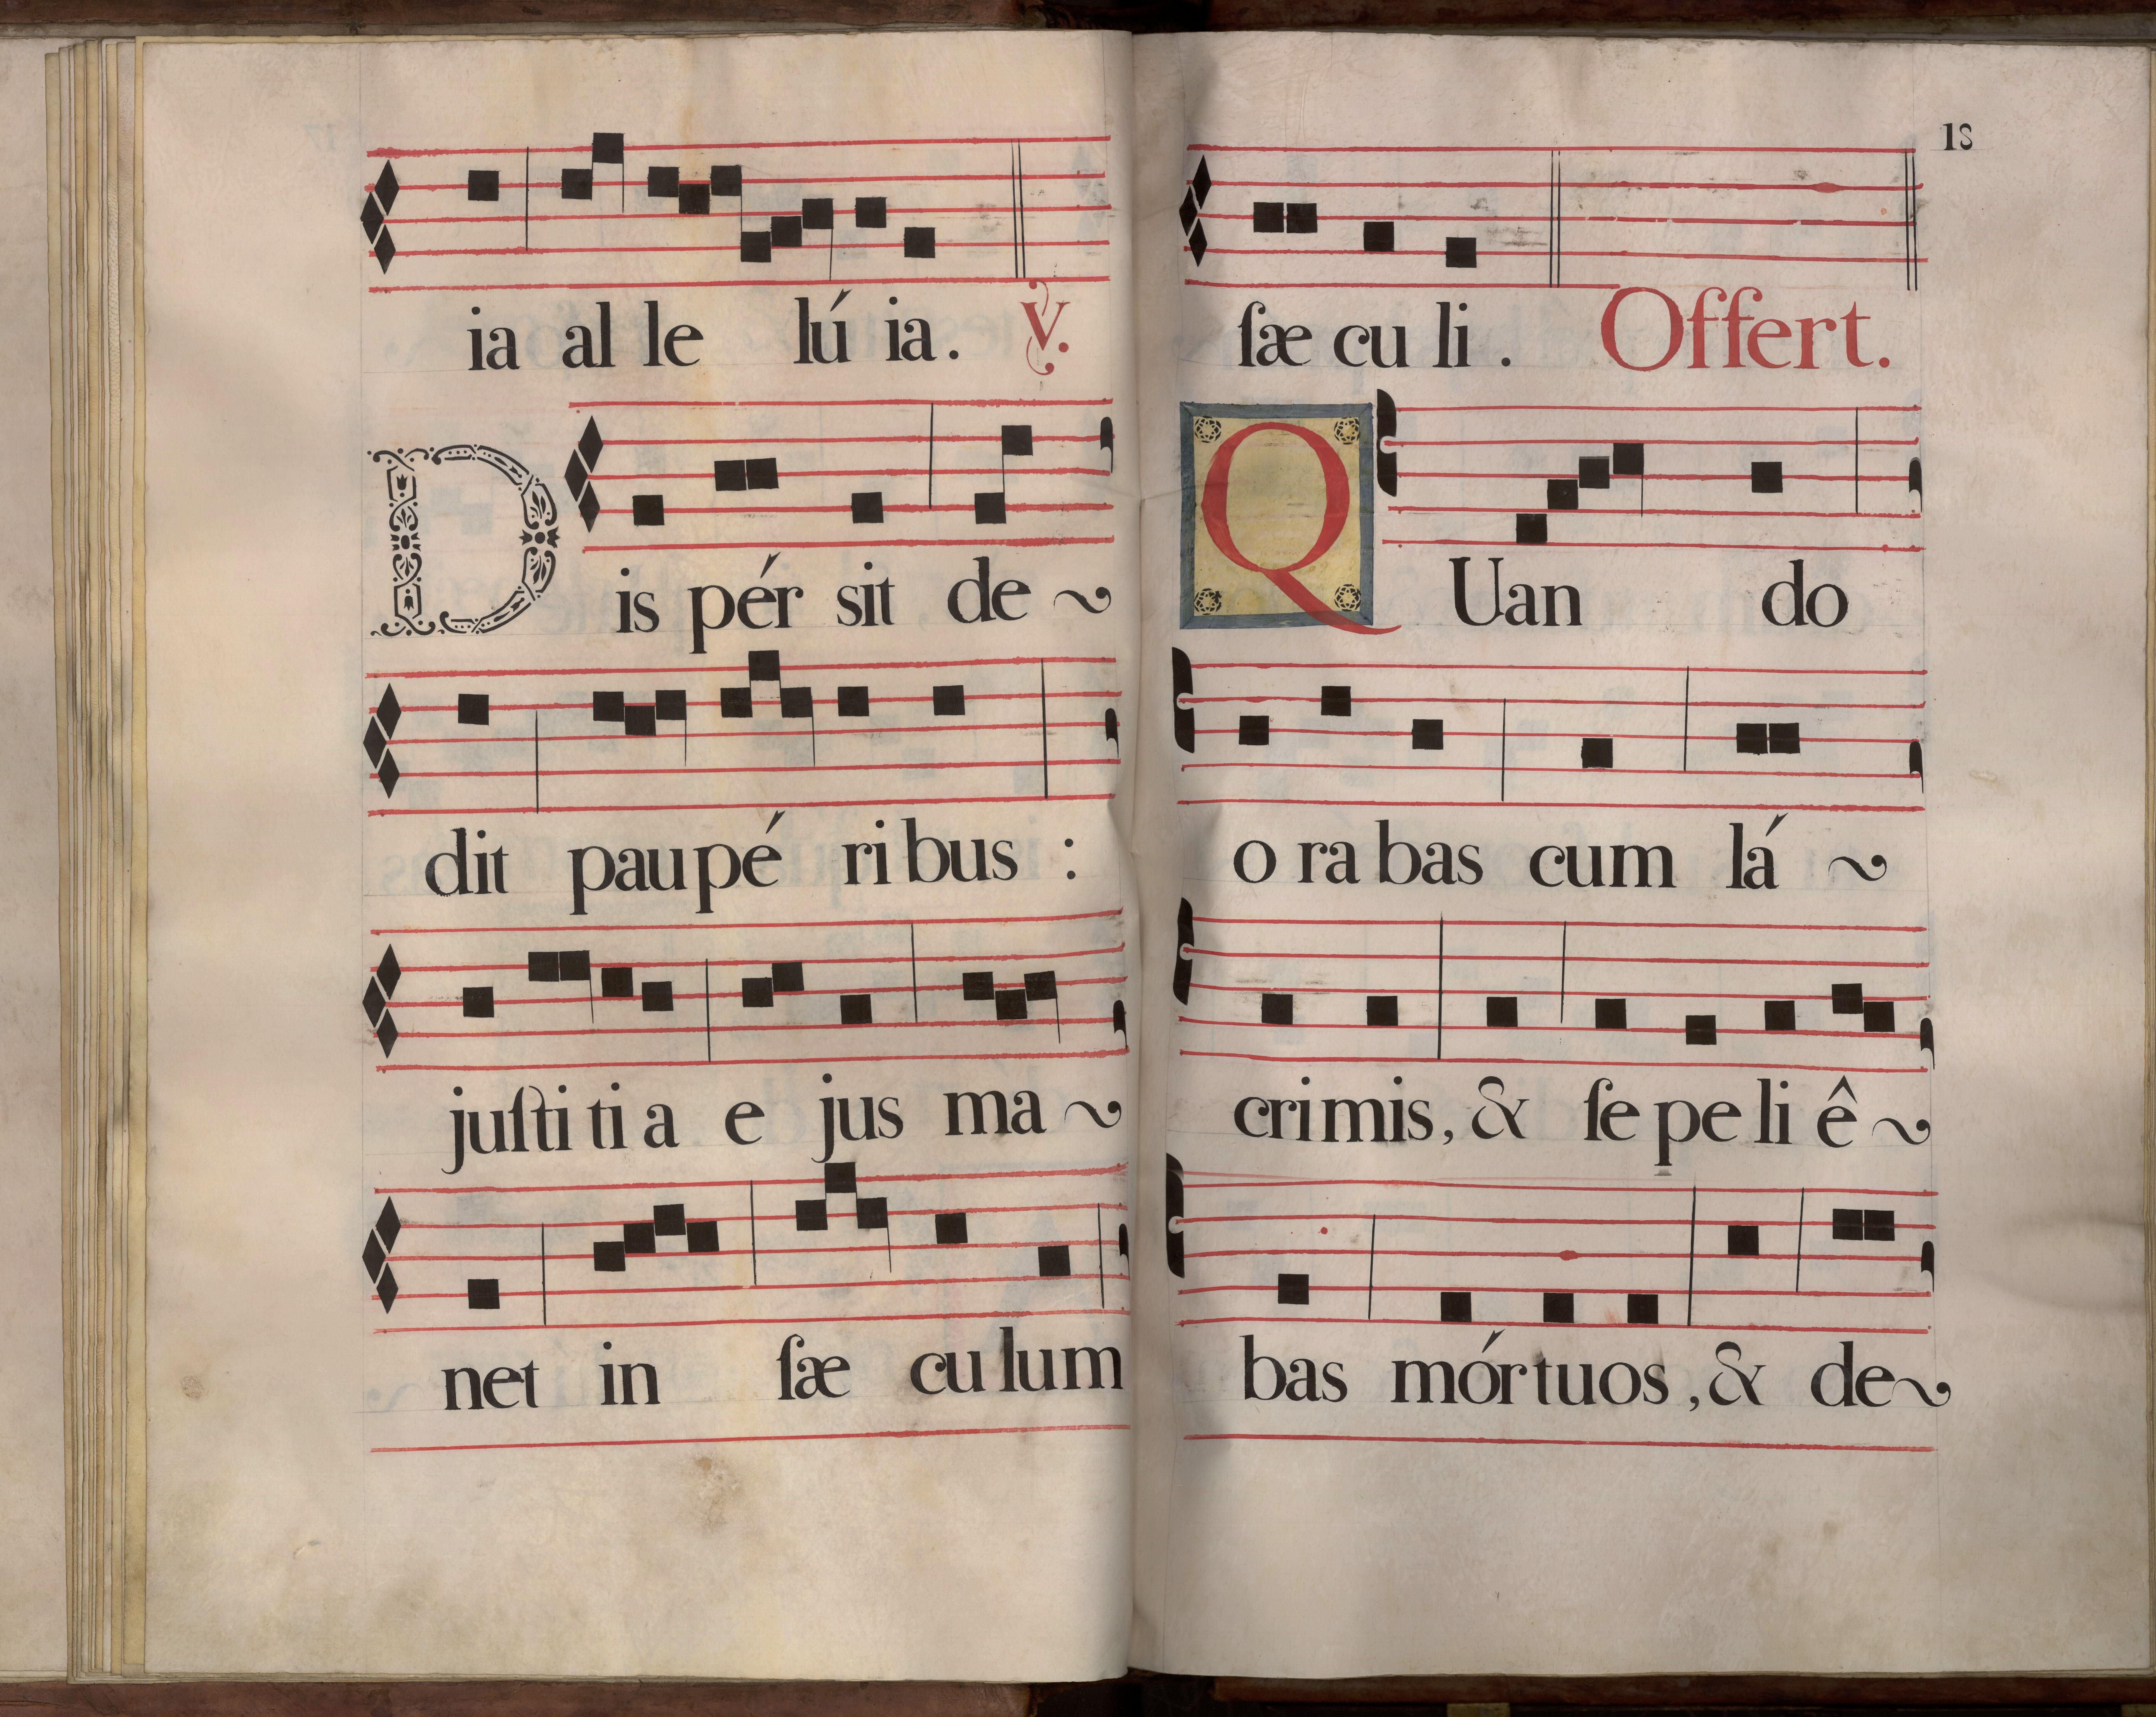 ia al le lú ia. ℣.
Dis pér sit de~
dit pau pé ri bus :
juſti ti a e jus ma~
net in ſæ cu lum
18
ſæ cu li . Offert.
QUan do
o ra bas cum lá ~
cri mis, & ſe pe li ê~
bas mórtuos, & de~